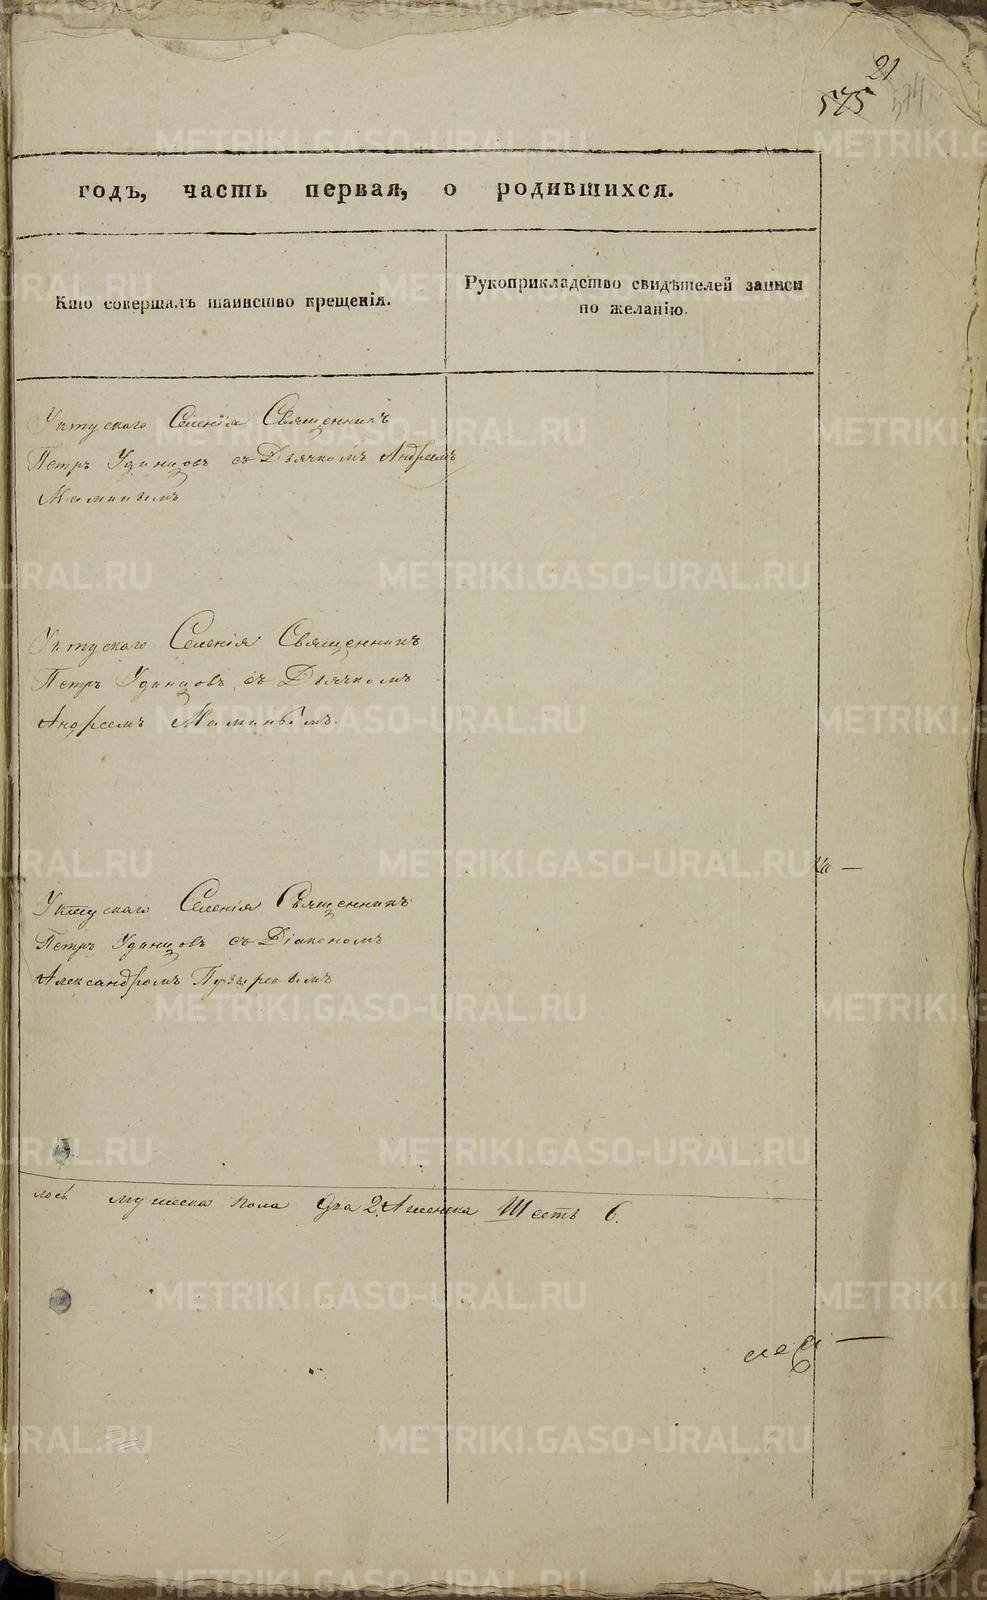 21
575 574
годъ, часть первая, о родившихся.
Кто совершалъ таинство крещенія.
Рукоприкладство свидѣтелей записи
по желанію.
Уктускаго Селенія Священникъ
Петръ Удинцовъ съ Дьячкомъ Андреемъ
Маминымъ
Уктускаго Селенія Священникъ
Петръ Удинцовъ съ Дьячкомъ
Андреемъ Маминымъ.
Уктускаго Селенія Священникъ
Петръ Удинцовъ съ Діакономъ
Александромъ Пузыревымъ
лось мужеска пола два 2. А женска Шесть 6.
METRIKI.GASO-URAL.RU